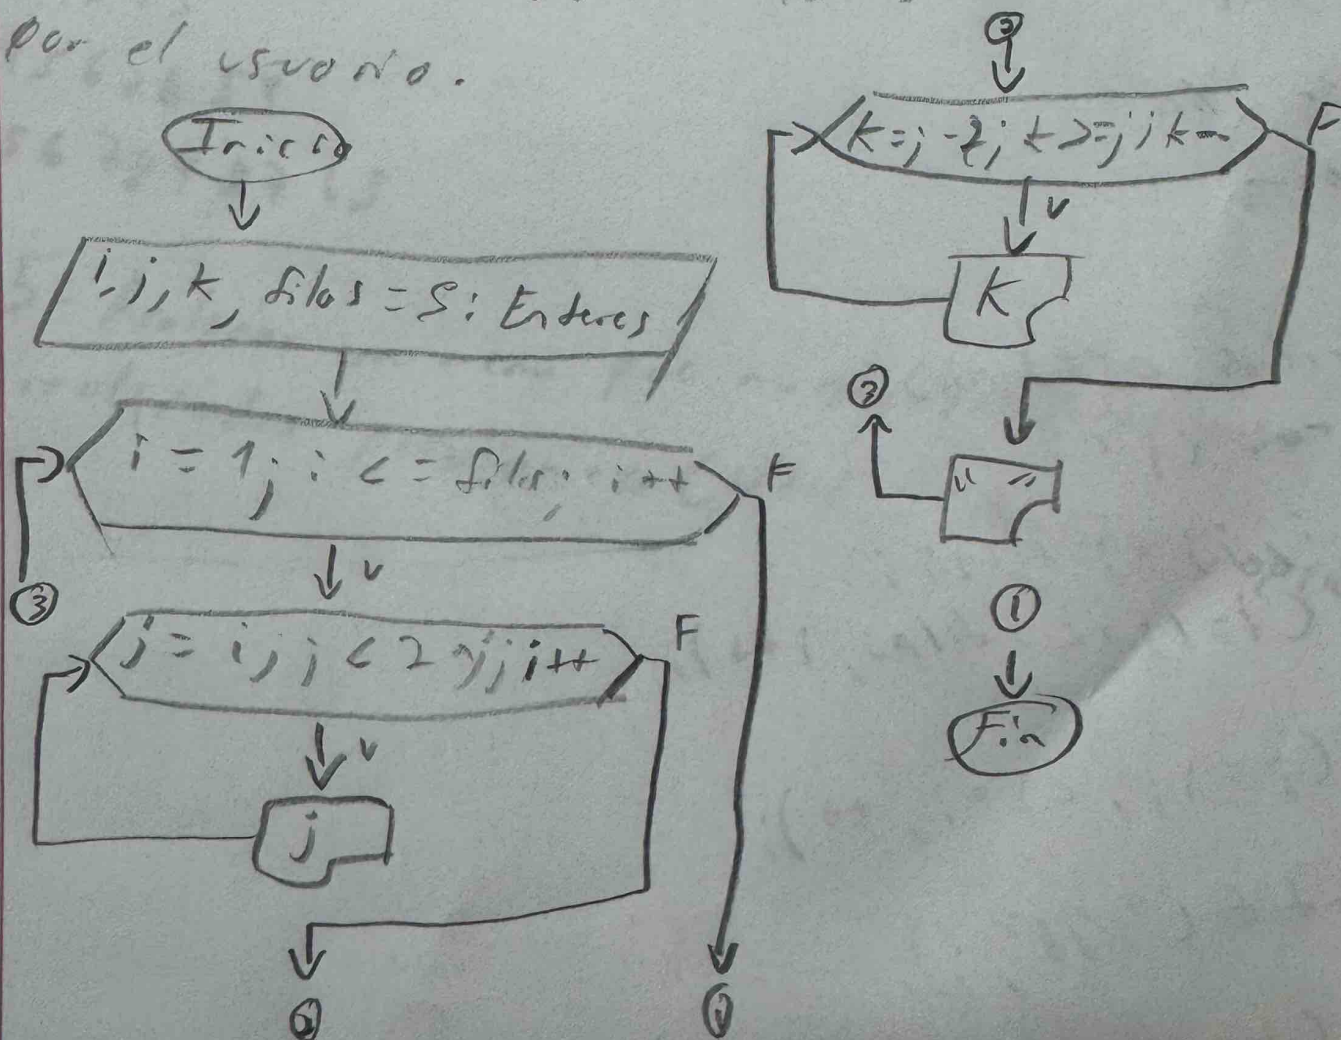 por el usuario.
Inicio
i, j, k, filas = 5: Enteros
i = 1; i <= filas; i++
F
V
3
j = i; j < 2 * i; j++
F
V
j
2
1
2
k = j - 2; k >= i; k--
F
V
k
3
" "
1
Fin